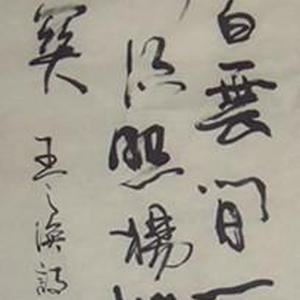 白雲間一
須怨楊
關
王之渙詩